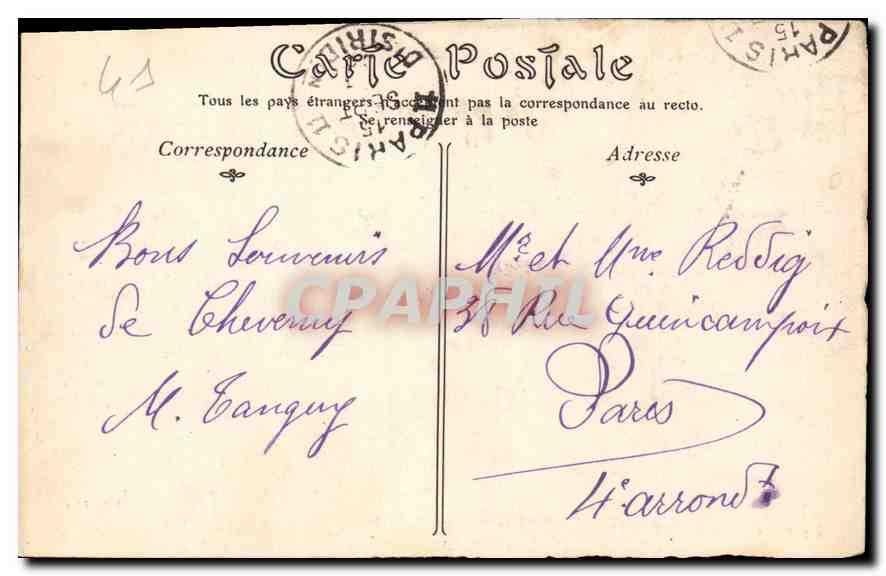 Carte Postale
Tous les pays étrangers n'acceptent pas la correspondance au recto.
Se renseigner à la poste
Correspondance
Adresse
41
PARIS 11 DISTRIBUTION
15
SEPT
PARIS
15
Bons Souvenirs
de Cheverny
M. Tanguy
Mr et Mme Reddig
38 Rue Quincampoix
Paris
4e arrondt
CPAPHIL